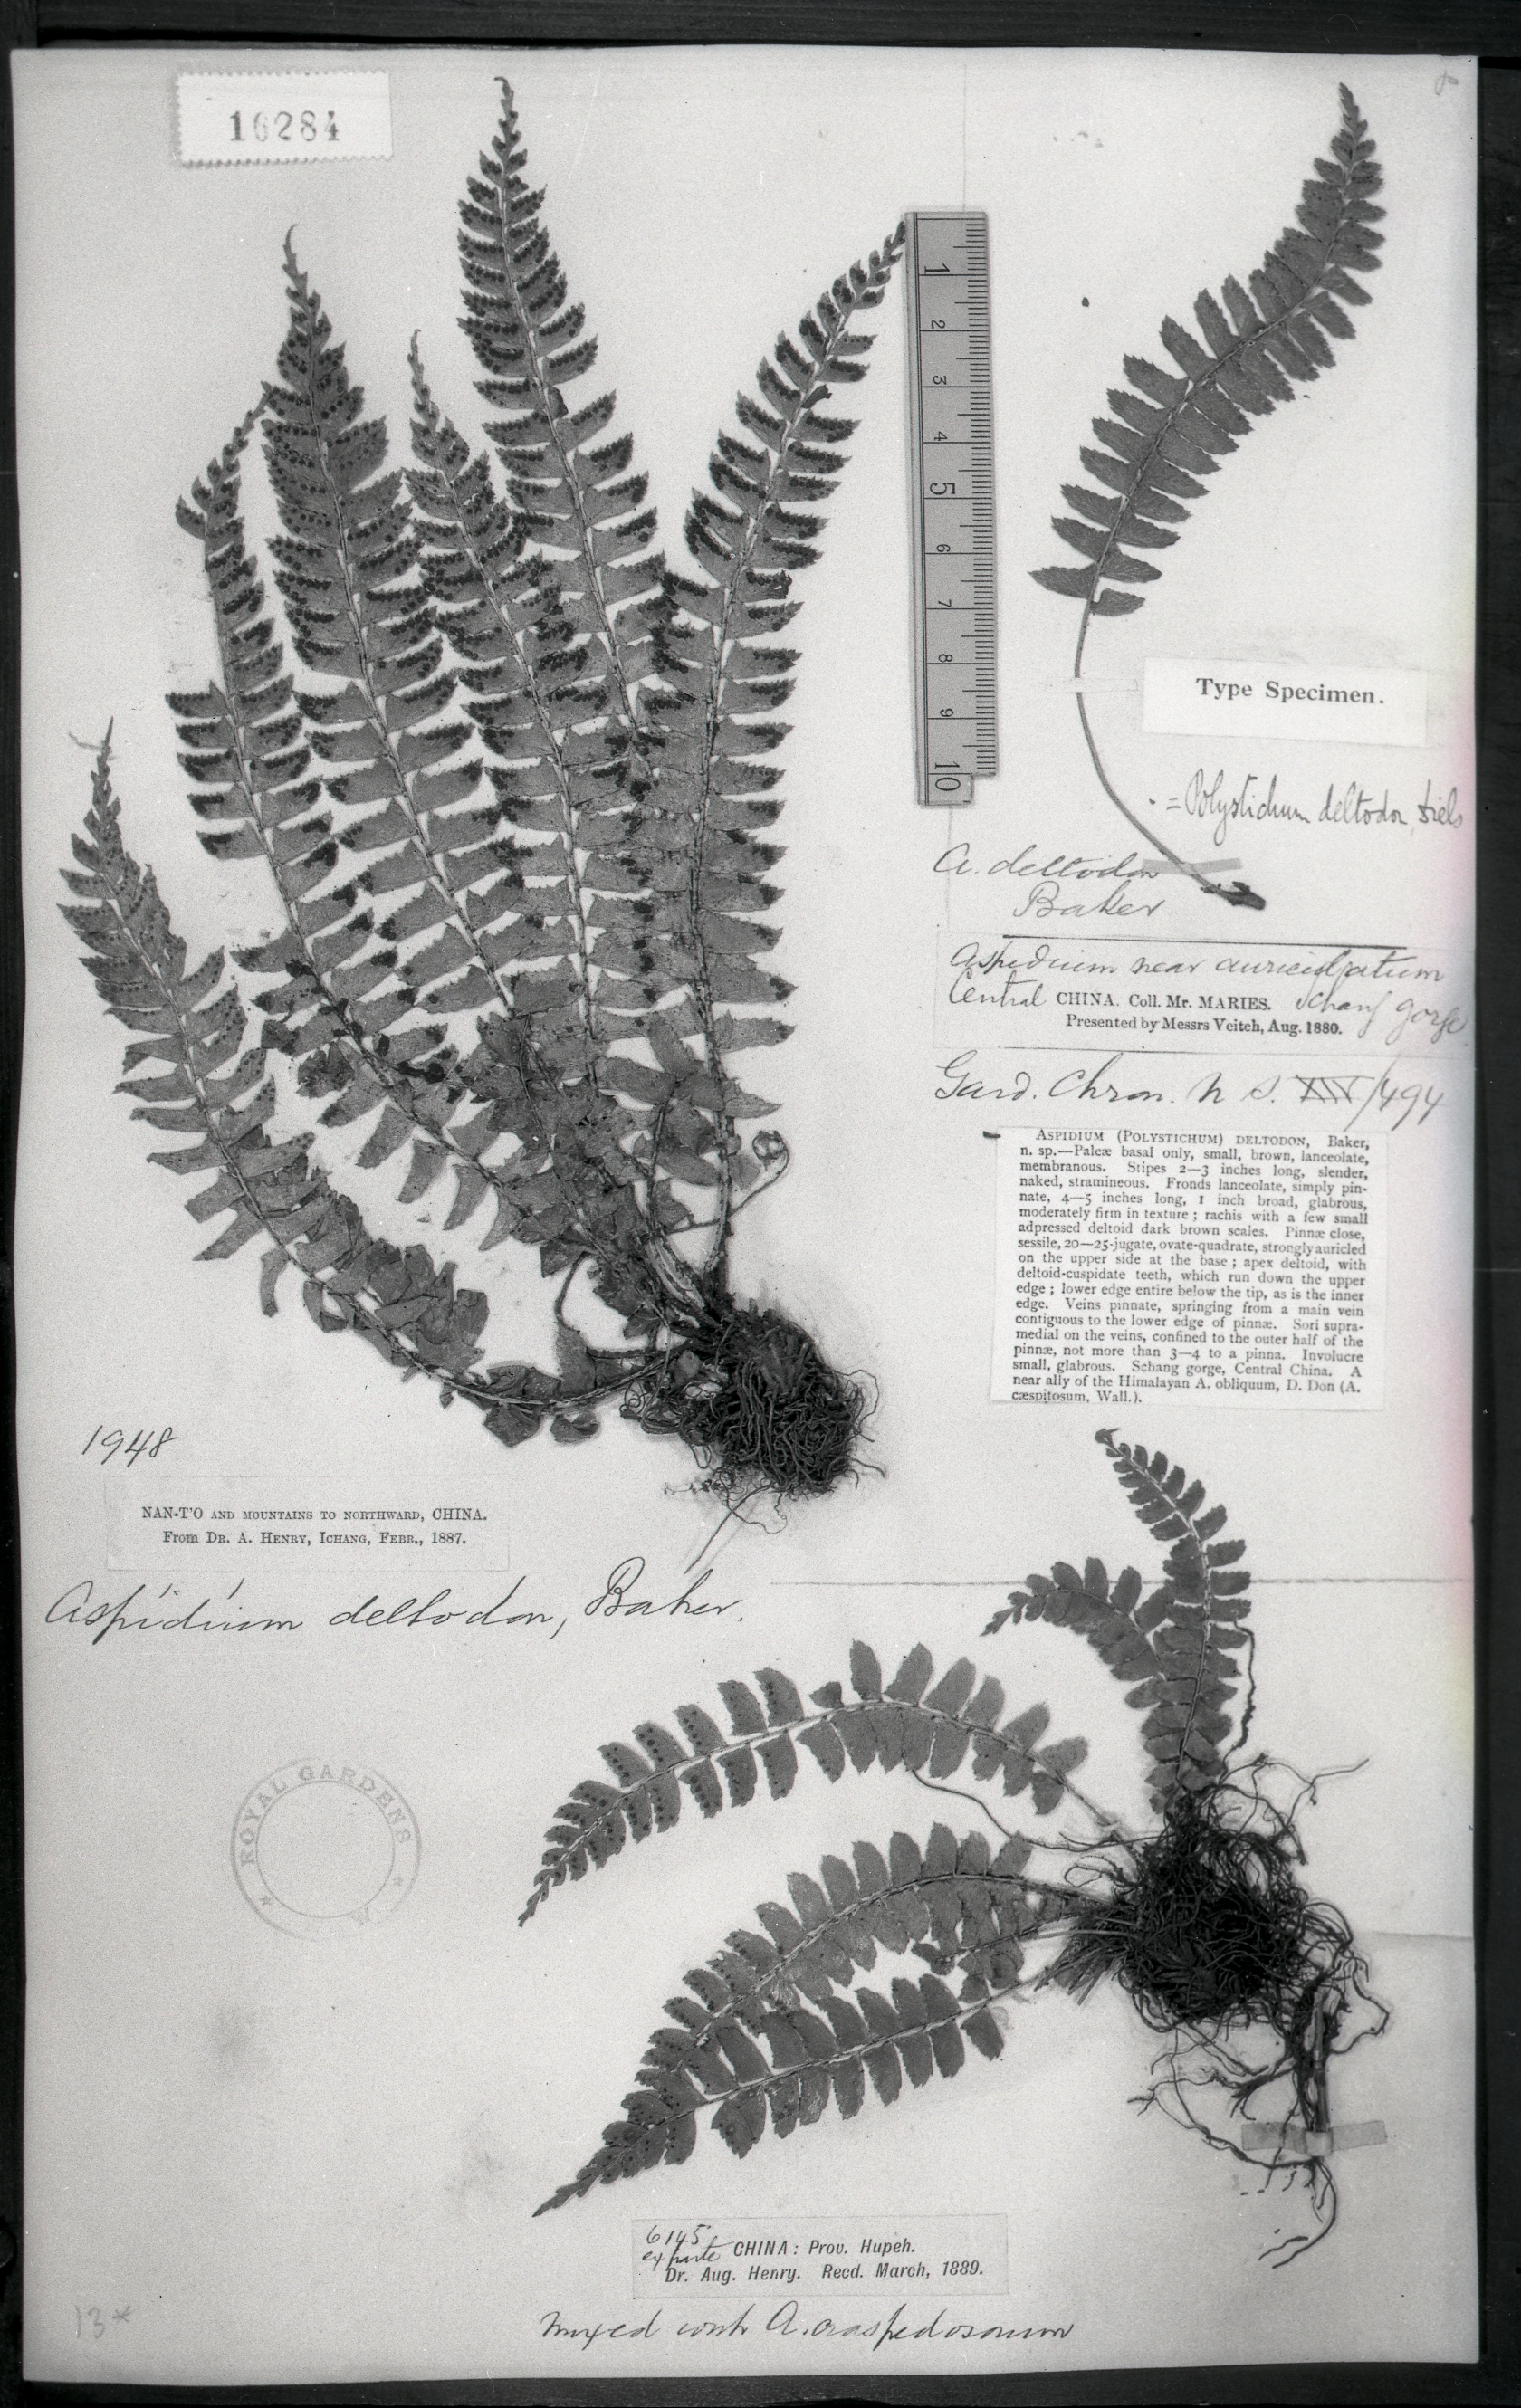 16284
1
2
3
4
5
6
7
8
9
10
Type Specimen.
= Polystichum deltodon, Diels
A. deltodon
Baker
Aspidium near auriculatum
Central CHINA. Coll. Mr. MARIES. Schang gorge
Presented by Messrs Veitch, Aug. 1880.
Gard. Chron. N S. XIV/494
ASPIDIUM (POLYSTICHUM) DELTODON, Baker,
n. sp.—Paleæ basal only, small, brown, lanceolate,
membranous. Stipes 2—3 inches long, slender,
naked, stramineous. Fronds lanceolate, simply pin-
nate, 4—5 inches long, 1 inch broad, glabrous,
moderately firm in texture; rachis with a few small
adpressed deltoid dark brown scales. Pinnæ close,
sessile, 20—25-jugate, ovate-quadrate, strongly auricled
on the upper side at the base; apex deltoid, with
deltoid-cuspidate teeth, which run down the upper
edge; lower edge entire below the tip, as is the inner
edge. Veins pinnate, springing from a main vein
contiguous to the lower edge of pinnæ. Sori supra-
medial on the veins, confined to the outer half of the
pinnæ, not more than 3—4 to a pinna. Involucre
small, glabrous. Schang gorge, Central China. A
near ally of the Himalayan A. obliquum, D. Don (A.
cæspitosum, Wall.).
1948
NAN-T'O AND MOUNTAINS TO NORTHWARD, CHINA.
From DR. A. HENRY, ICHANG, FEBR., 1887.
Aspidium deltodon, Baker.
ROYAL GARDENS
6145
ex parte CHINA: Prov. Hupeh.
Dr. Aug. Henry. Recd. March, 1889.
mixed with A. craspedosorum
13*